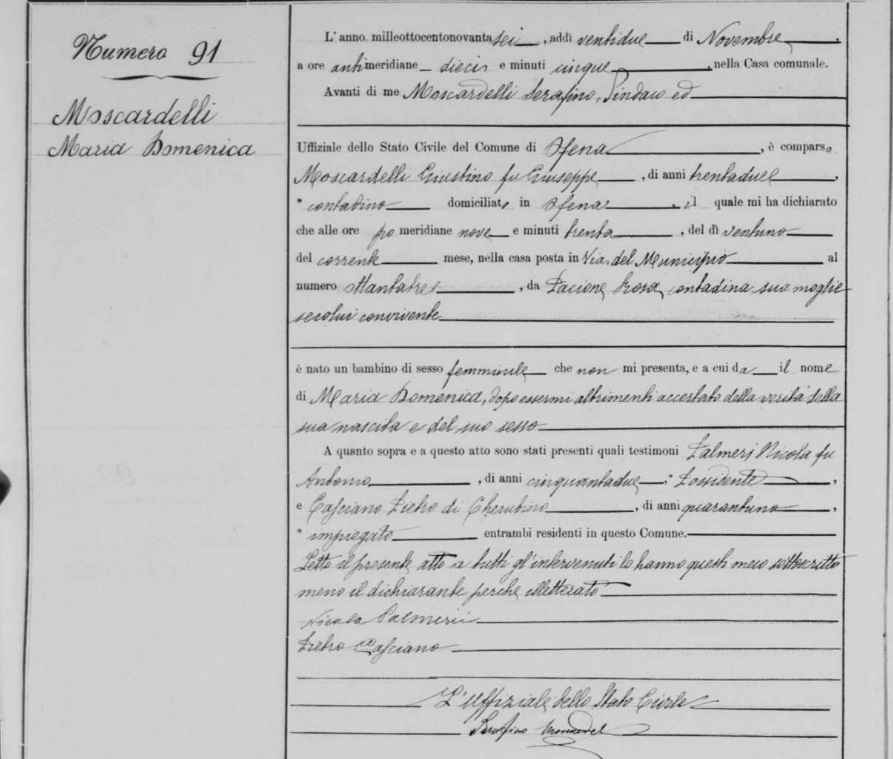 Numero 91
Moscardelli
Maria Domenica
L'anno milleottocentonovantasei, addì ventidue di Novembre,
a ore antimeridiane dieci e minuti cinque, nella Casa comunale.
Avanti di me Moscardelli Serafino, Sindaco ed
Uffiziale dello Stato Civile del Comune di Ofena, è comparso
Moscardelli Giustino fu Giuseppe, di anni trentadue,
contadino domiciliato in Ofena, il quale mi ha dichiarato
che alle ore po meridiane nove e minuti trenta, del dì ventuno
del corrente mese, nella casa posta in Via del Municipio al
numero ottantatre, da Pacione Rosa, contadina sua moglie
secolui convivente
è nato un bambino di sesso femminile che non mi presenta, e a cui da il nome
di Maria Domenica, dopo essermi altrimenti accertato della verità della
sua nascita e del suo sesso
A quanto sopra e a questo atto sono stati presenti quali testimoni Palmerj Nicola fu
Antonio, di anni cinquantadue, Possidente,
e Casciano Pietro di Cherubino, di anni quarantuno,
impiegato entrambi residenti in questo Comune.
Letto il presente atto a tutti gl'intervenuti lo hanno questi meco sottoscritto
meno il dichiarante perche illetterato
Nicola Palmerii
Pietro Casciano
L'Uffiziale dello Stato Civile
Serafino